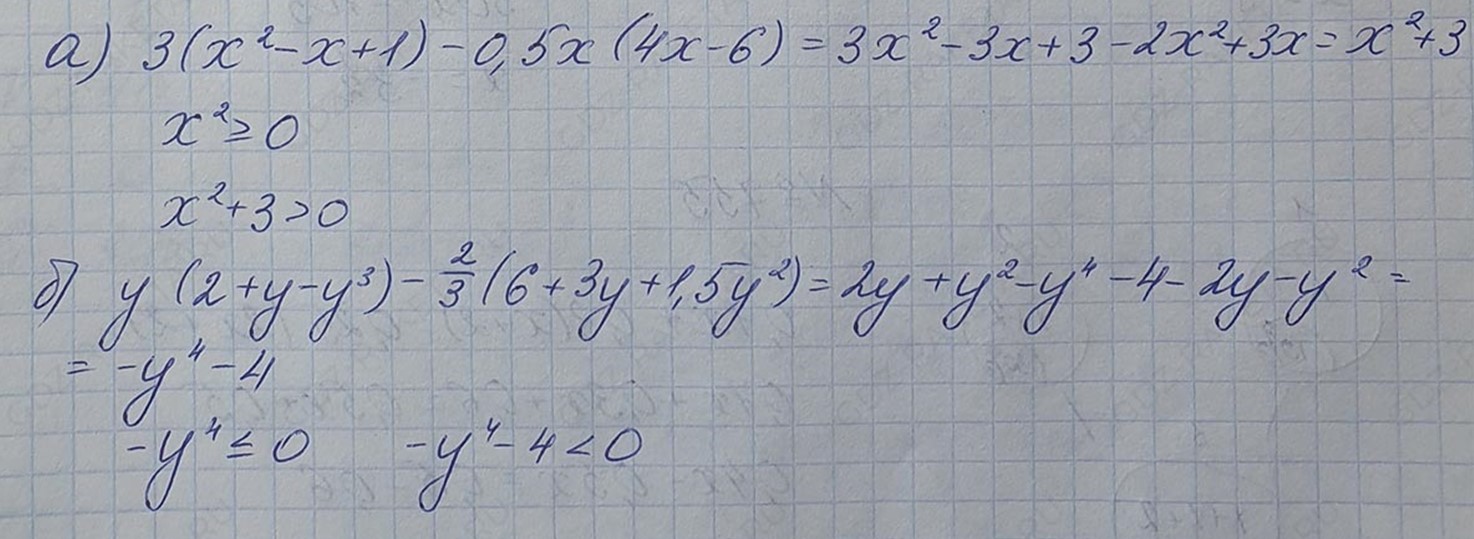 а) 3(x²-x+1)-0,5x(4x-6)=3x²-3x+3-2x²+3x=x²+3
x²≥0
x²+3>0
б) y(2+y-y³)-2/3(6+3y+1,5y²)=2y+y²-y⁴-4-2y-y²=
=-y⁴-4
-y⁴≤0 -y⁴-4<0